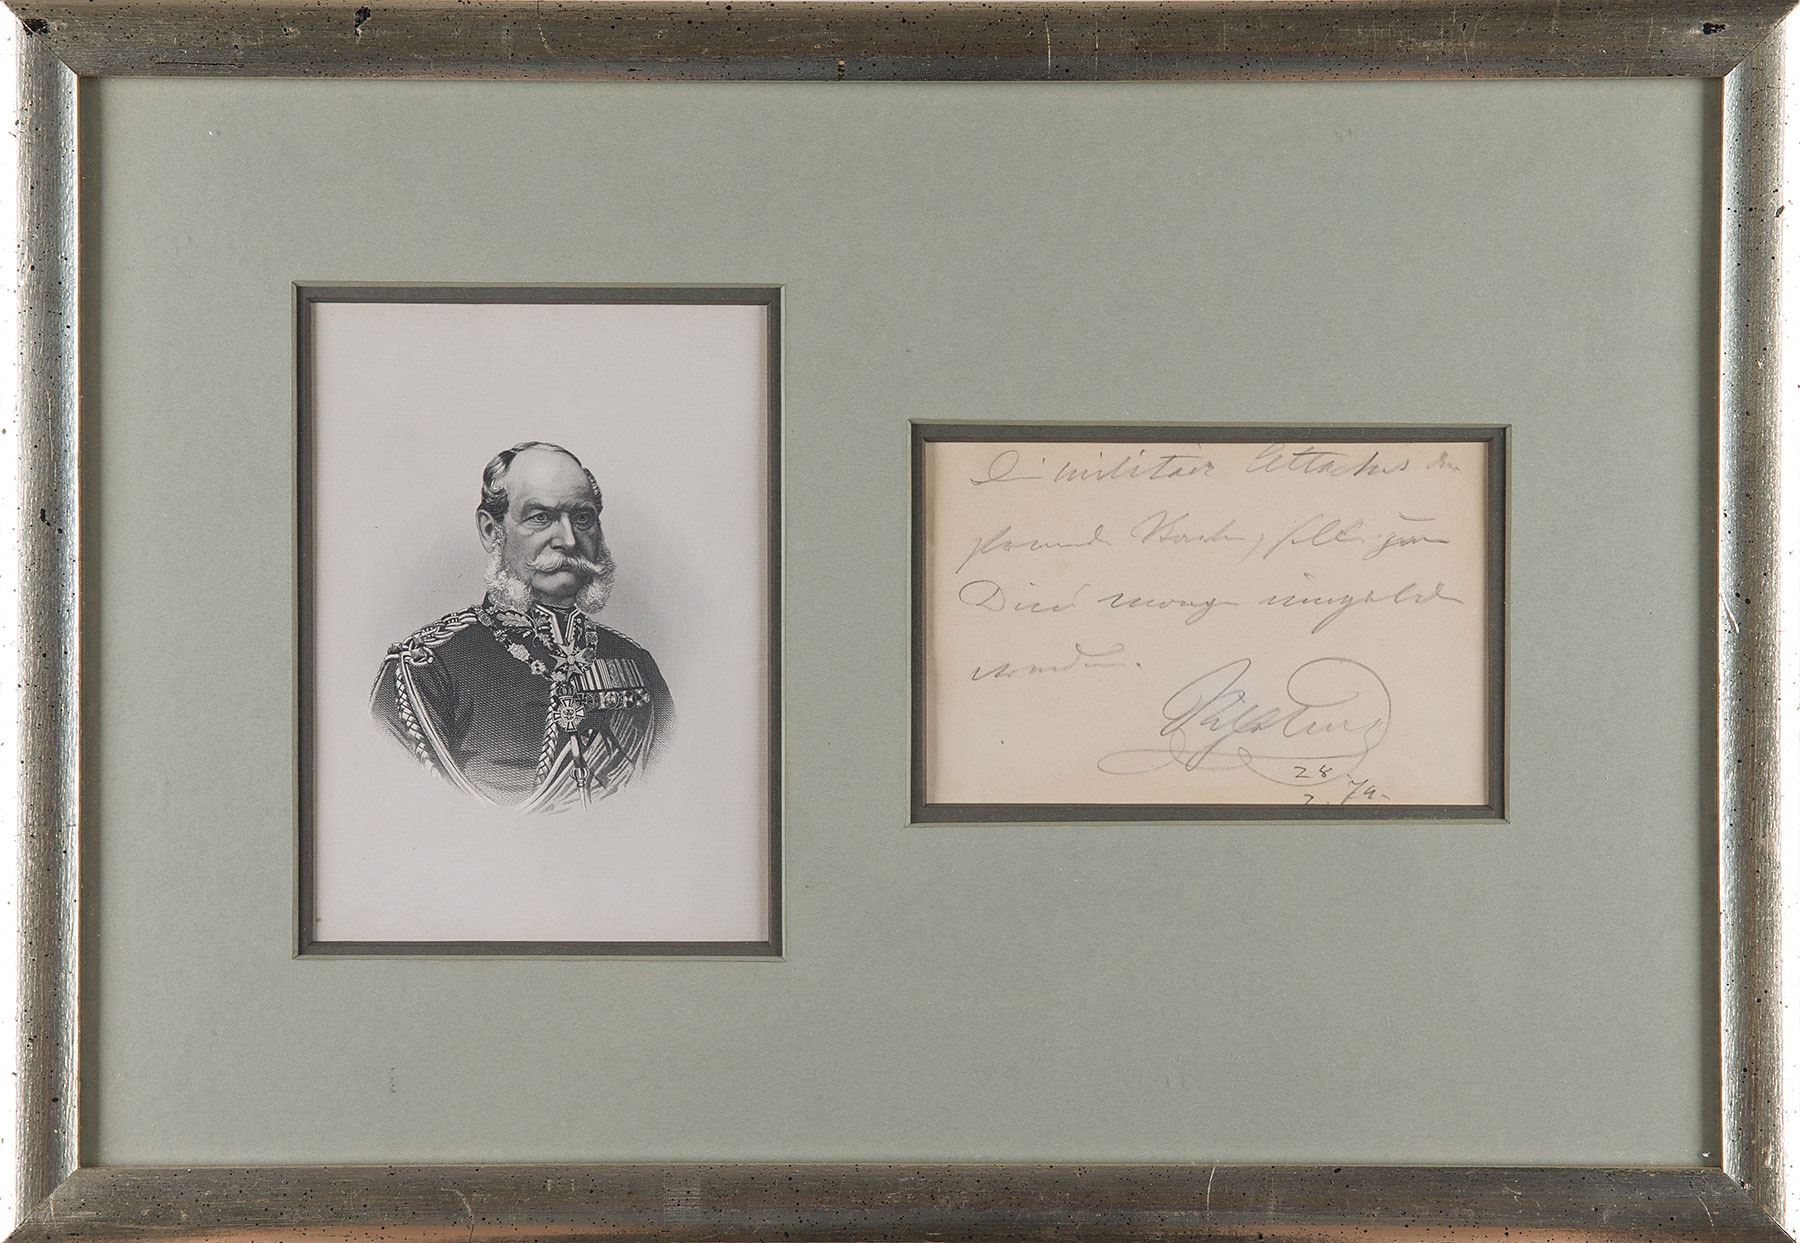 Die militair Attachés der
fremden Mächte, sollen zum
Diner morgen eingeladen
werden.
Wilhelm
28
2. 79.